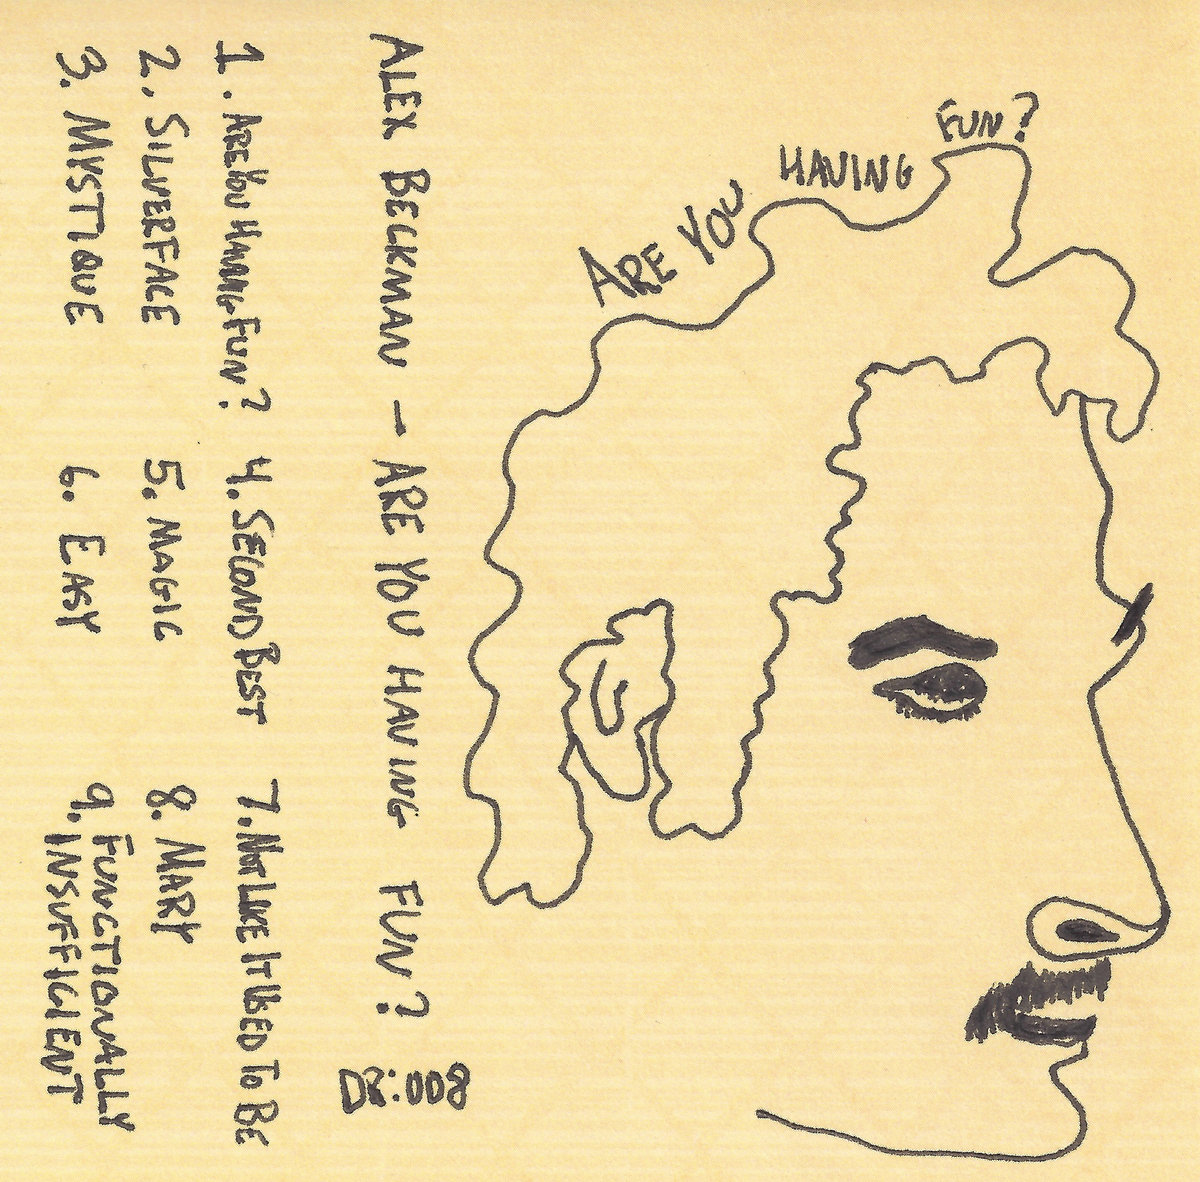 ARE YOU HAVING FUN?
ALEX BECKMAN - ARE YOU HAVING FUN?
1. ARE YOU HAVING FUN?
2. SILVERFACE
3. MYSTIQUE
4. SECOND BEST
5. MAGIC
6. EASY
7. NOT LIKE IT USED TO BE
8. MARY
9. FUNCTIONALLY
INSUFFICIENT